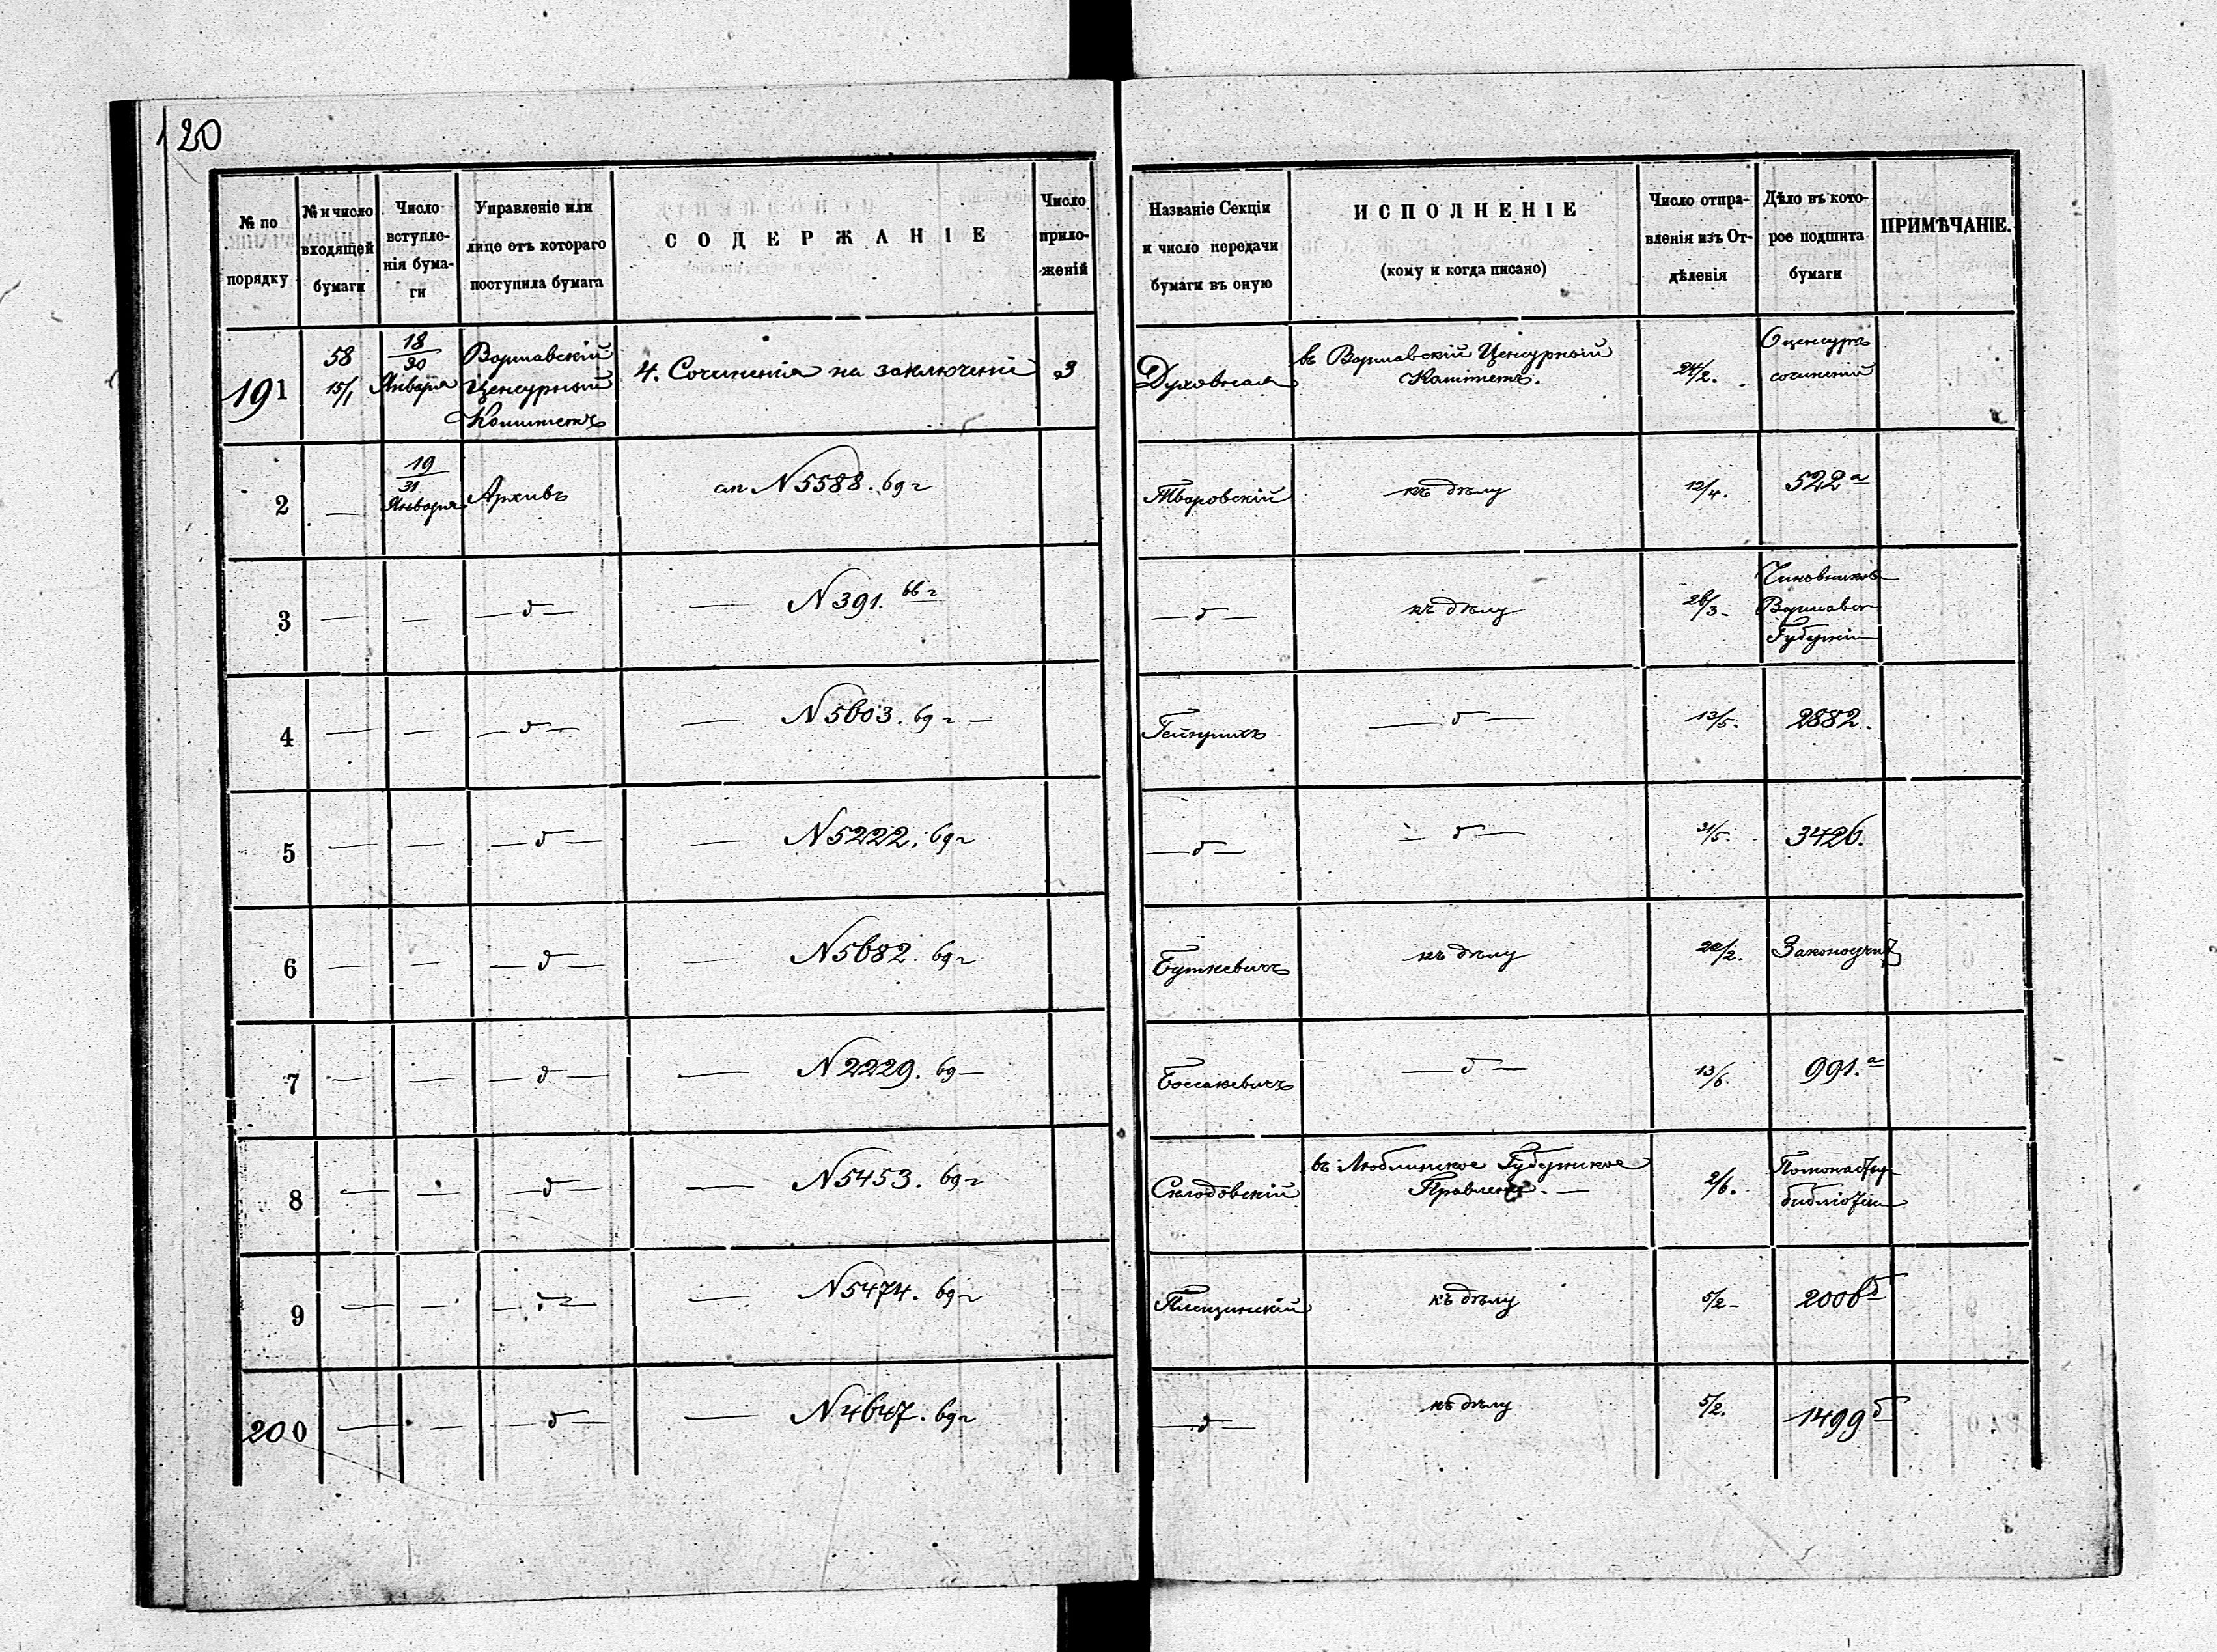 20
№ по порядку
№ и число входящей бумаги
Число вступле-
нія бума-
ги
Управленіе или
лице отъ котораго
поступила бумага
СОДЕРЖАНІЕ
Число
прило-
женій
Названіе Секціи
и число передачи
бумаги въ оную
ИСПОЛНЕНІЕ
(кому и когда писано)
Число отпра-
вленія изъ От-
дѣленія
Дѣло въ кото-
рое подшита
бумаги
ПРИМѢЧАНІЕ.
191 58 15/1 18/30 Января Варшавскій Ценсурный Комитетъ 4. Сочиненія на заключеніе 3 Духовная въ Варшавскій Ценсурный Комитетъ. 24/2. О ценсурѣ сочиненій
2 — 19/31 Января Архивъ ап N 5588. 69 г Творовскій къ дѣлу 12/4. 522 а
3 — — — д — — N 391. 66 г — д — къ дѣлу 26/3 - Чиновниковъ Варшавск Губерніи
4 — — — д — — N 5603. 69 г — Гейнрихъ — д — 13/5. 2882.
5 — — — д — — N 5222. 69 г — д — — д — 31/5. 3426.
6 — — — д — — N 5682. 69 г Буткевичъ къ дѣлу 22/2. Законоучит
7 — — — д — — N 2229. 69 — Боссакевичъ — д — 13/6. 991. а
8 — — — д — — N 5453. 69 г Склодовскій въ Люблинское Губернское Правленіе. — 2/6. Помонастыр библіотеки
9 — — — д — — N 5474. 69 г Плещинскій къ дѣлу 5/2 - 2006 б
200 — — — д — — N 4647. 69 г — д — къ дѣлу 5/2. 1499 б